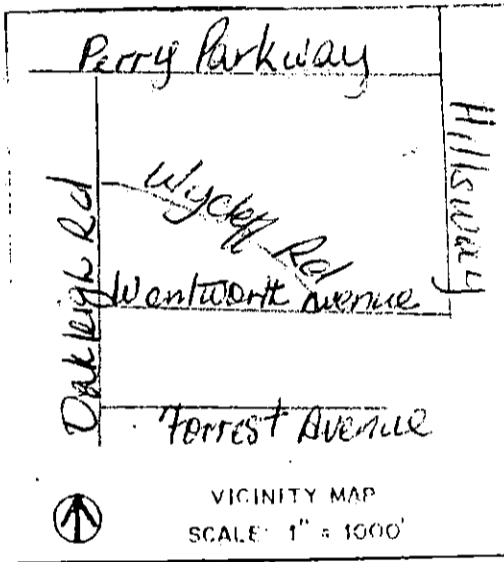 Perry Parkway
Hillsway
Wycliff Rd
Oakleigh Rd
Wentworth Avenue
Forrest Avenue
VICINITY MAP
SCALE: 1" = 1000'